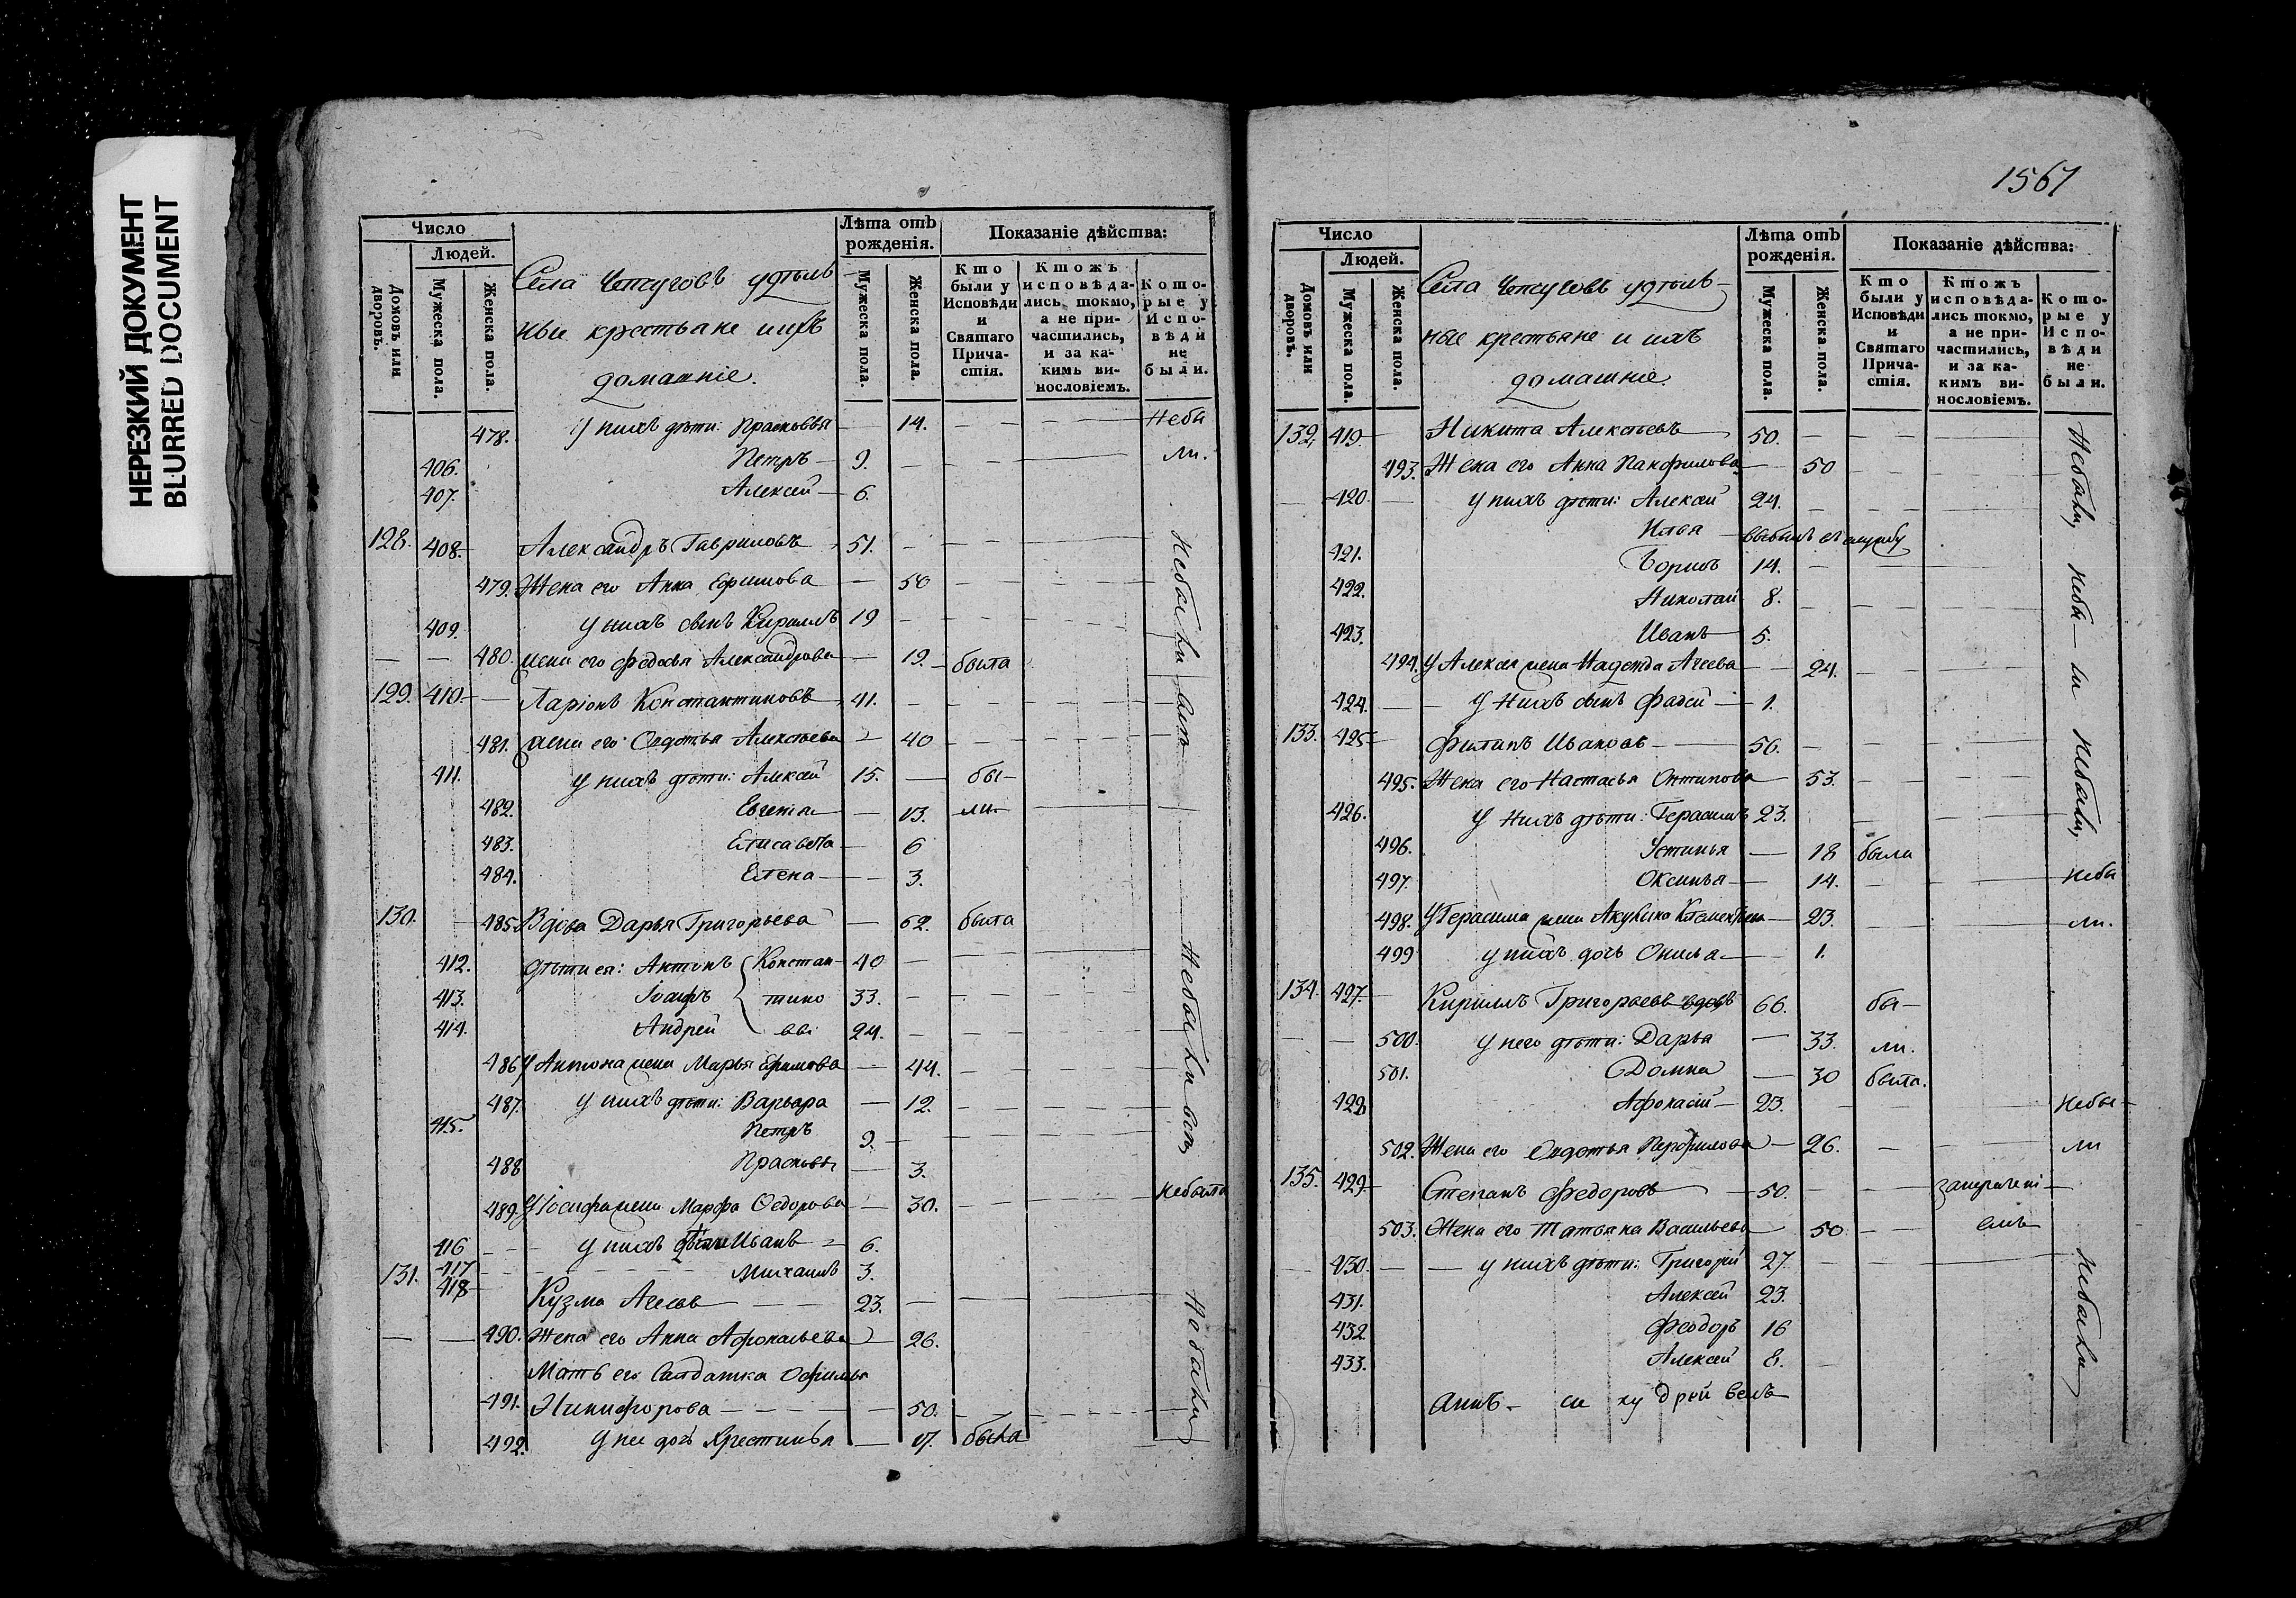 НЕРЕЗКИЙ ДОКУМЕНТ
BLURRED DOCUMENT
Число
Людей.
Домовъ или дворовъ.
Мужеска пола.
Женска пола.
Села Чепчуговъ удѣль
ныи крестьяне ихъ
домашніе.
Лѣта отъ рожденія.
Мужеска пола.
Женска пола.
Показаніе дѣйства:
Кто были у Исповѣди и Святаго Причастія.
Ктожъ исповѣдались токмо, а не причастились, и за какимъ винословіемъ.
Которые у Исповѣди не были.
478. У нихъ дѣти: Прасковья — 14. Небы
406. Петръ — 9. ли.
407. Алексей — 6.
128. 408. Александръ Гавриловъ 51.
479. Жена его Анна Ефимова — 50
409. у нихъ сынъ Кириллъ 19
480. жена его Федосья Александрова — 19. была
129. 410. Ларіонъ Константиновъ 41.
481. жена его Овдотья Алексѣева — 40
411. у нихъ дѣти: Алексей 15. — бы-
482. Евгенія — 13. ли.
483. Елисавета — 6
484. Елена — 3.
130. 485. Вдова Дарья Григорьева — 62. была
412. дѣти ея: Антонъ { Констан- 40
413. Іосифъ { тино 33.
414. Андрей { вы 24.
486. У Антона жена Марья Ефимова — 44.
487. у нихъ дѣти: Варвара — 12.
415. Петръ 9.
488. Прасковья — 3.
489. У Іосифа жена Марфа Ѳедорова — 30. Небыла
416 у нихъ дѣти Иванъ 6.
417 Михаилъ 3.
131. 418 Кузма Агеевъ 23.
490. Жена его Анна Афонасьева 26.
Мать его Солдатка Офимья
491. Никифорова 50.
492. У нее дочь Крестинья — 17. была
Небыли
1567
Число
Людей.
Домовъ или дворовъ.
Мужеска пола.
Женска пола.
Села Чепчуговъ удѣль-
ные крестьяне и ихъ
домашніе.
Лѣта отъ рожденія.
Мужеска пола.
Женска пола.
Показаніе дѣйства:
Кто были у Исповѣди и Святаго Причастія.
Ктожъ исповѣдались токмо, а не причастились, и за какимъ винословіемъ.
Которые у Исповѣди не были.
132. 419 Никита Алексѣевъ 50.
493. Жена его Анна Панфилова — 50
420. у нихъ дѣти: Алексей 24.
Илья
421. Борисъ 14.
422. Николай 8.
423. Иванъ 5.
494. У Алексея жена Надежда Агеева — 24.
424. У Нихъ сынъ Фадей — 1.
133. 425 Филипъ Ивановъ — 56.
495. Жена его Настасья Онтипова — 53.
426. У Нихъ дѣти: Герасимъ 23.
496. Устинья — 18 была
497. Оксинья — 14. небы
498. У Герасима жена Акулина — 23. ли.
499 у нихъ дочь — 1.
134. 427. Кириллъ Григорьевъ вдовъ 66. бы-
500. у него дѣти: Дарья — 33. ли.
501. Домна — 30 была.
428 Афонасій — 23. Небы-
502. Жена его Овдотья — 26. ли
135. 429. Степанъ Федоровъ — 50.
503. Жена его Татьяна Васильева 50
430. у нихъ дѣти: Григорій 27.
431. Алексей 23.
432 Феодоръ 16
433. Алексей 8.
Небыли